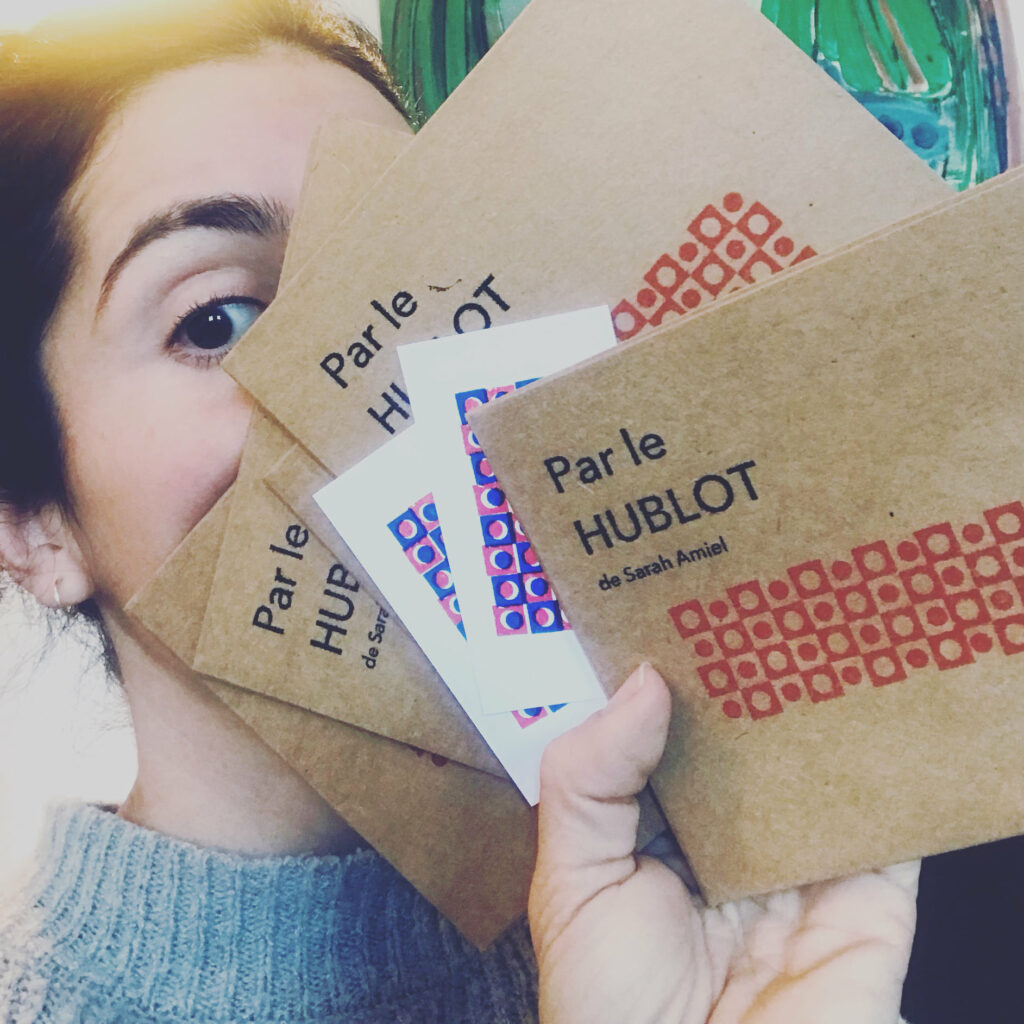 Par le
HUBLOT
Par le
HUBLOT
de Sarah Amiel
Par le
HUB
de Sara